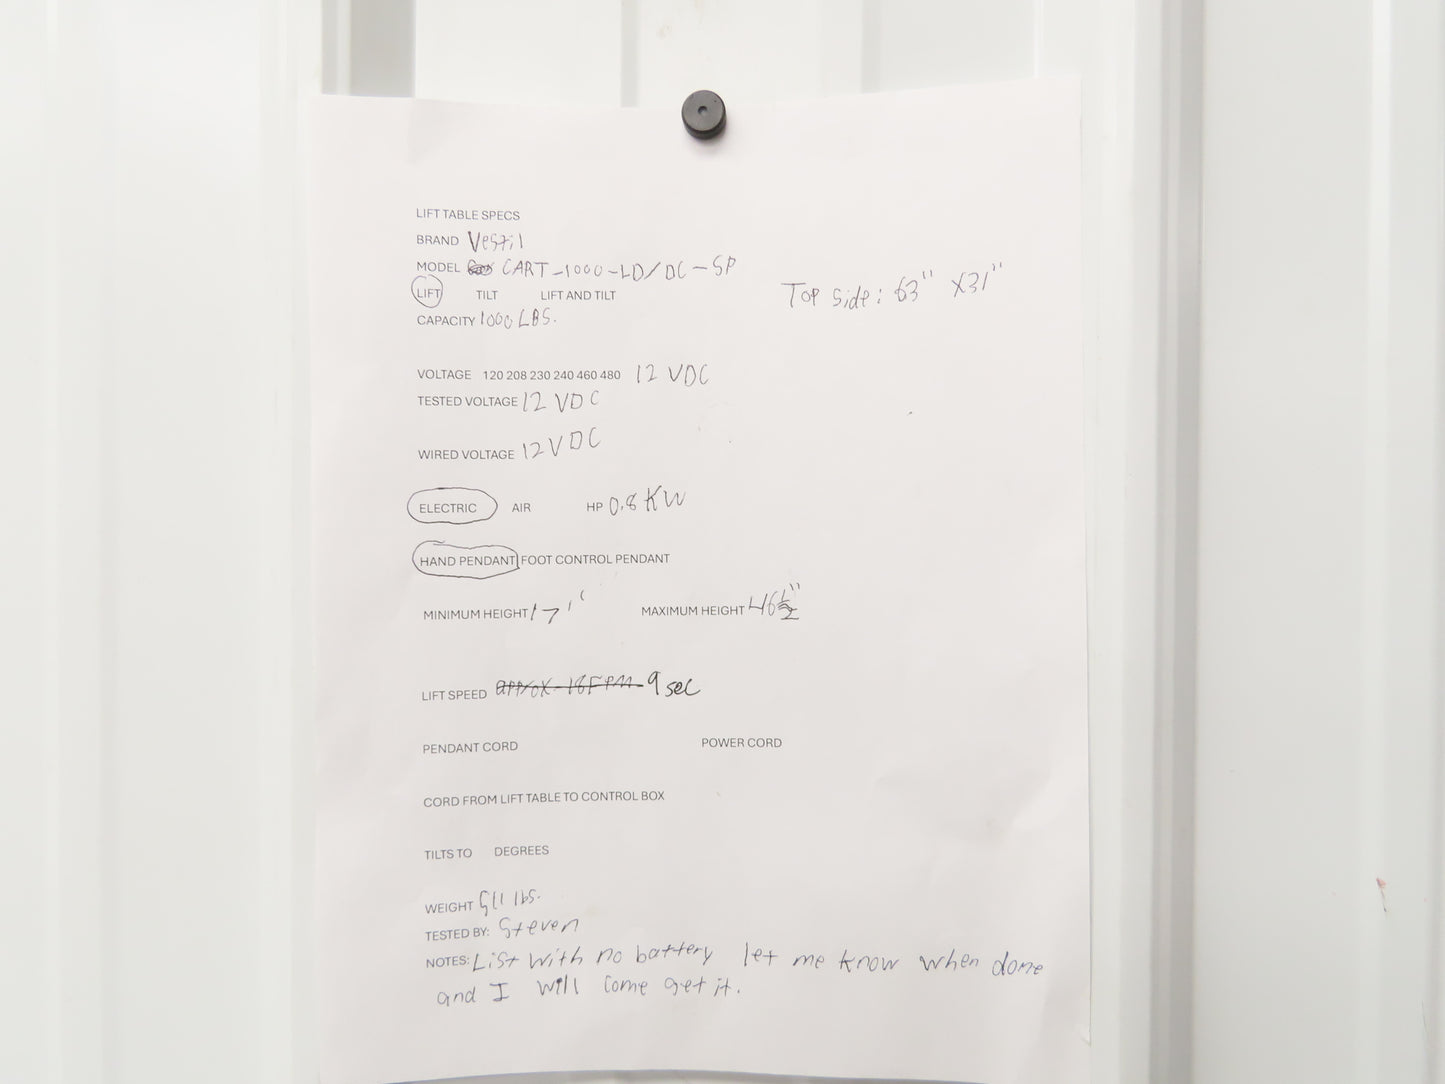 LIFT TABLE SPECS
BRAND Vestil
MODEL CART-1000-LD/DC-SP
LIFT TILT LIFT AND TILT
Top side: 63" X31"
CAPACITY 1000 LBS.
VOLTAGE 120 208 230 240 460 480 12 VDC
TESTED VOLTAGE 12 VDC
WIRED VOLTAGE 12VDC
ELECTRIC AIR HP 0.8 KW
HAND PENDANT FOOT CONTROL PENDANT
MINIMUM HEIGHT 17" MAXIMUM HEIGHT 46½"
LIFT SPEED approx 18FPM 9 sec
PENDANT CORD POWER CORD
CORD FROM LIFT TABLE TO CONTROL BOX
TILTS TO DEGREES
WEIGHT 511 lbs.
TESTED BY: Steven
NOTES: List with no battery let me know when done
and I will come get it.